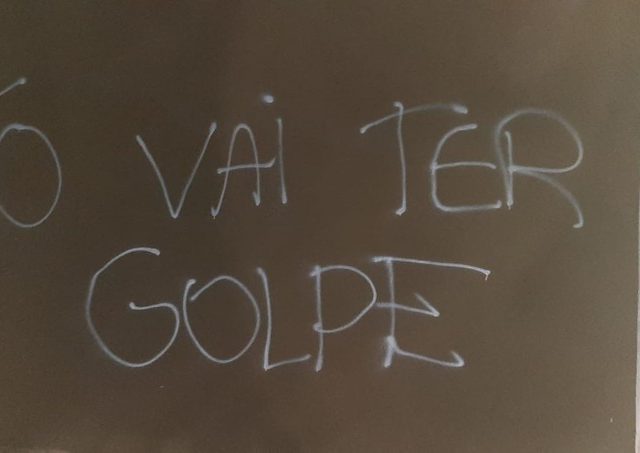 Ó VAI TER
GOLPE